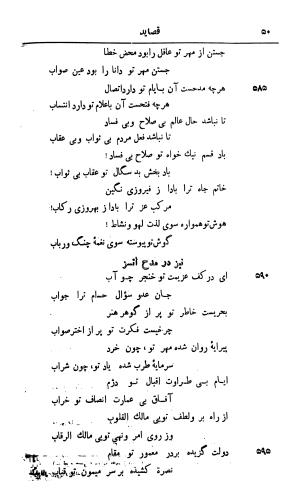 ۵۰ قصاید
جستن از مهر تو عاقل را بود محض خطا
جستن مهر تو دانا را بود عین صواب
۵۸۵ هرچه مدحست آن بایام تو دارد اتصال
هرچه فتحست آن باعلام تو دارد انتساب
تا نباشد حال عالم بی صلاح و بی فساد
تا نباشد فعل مردم بی ثواب و بی عقاب
باد قسم نیک خواه تو صلاح بی فساد!
باد بخش بد سگال تو عقاب بی ثواب!
خاتم جاه ترا بادا ز فیروزی نگین
مرکب عز ترا بادا ز بهروزی رکاب!
هوش تو همواره سوی لذت لهو و نشاط!
گوش تو پیوسته سوی نغمهٔ چنگ و رباب
نیز در مدح اتسز
۵۹۰ ای در کف عزیمت تو خنجر چو آب
جان عدو سؤال حسام ترا جواب
بحریست خاطر تو پر از گوهر هنر
چرخیست فکرت تو پر از اختر صواب
پیرایهٔ روان شده مهر تو، چون خرد
سرمایهٔ طرب شده یاد تو، چون شراب
ایام بی طراوت اقبال تو دژم
آفاق بی عمارت انصاف تو خراب
از راه بر و لطف تویی مالک القلوب
وز روی امر و نهی تویی مالک الرقاب
۵۹۵ دولت گزیده بر در معمور تو مقام
نصرة کشیده بر سر میمون تو قباب